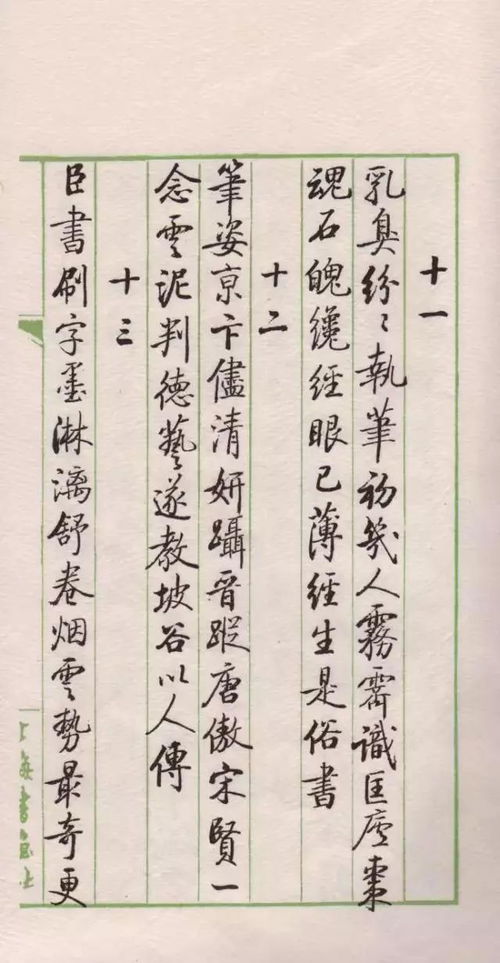 十一
乳臭紛〻執筆初幾人霧霽識匡廬棗
魂石魄纔經眼已薄經生是俗書
十二
筆姿京卞儘清妍躡晉蹤唐傲宋賢一
念雲泥判德藝遂教坡谷以人傳
十三
臣書刷字墨淋漓舒卷烟雲勢最奇更
上海書画社